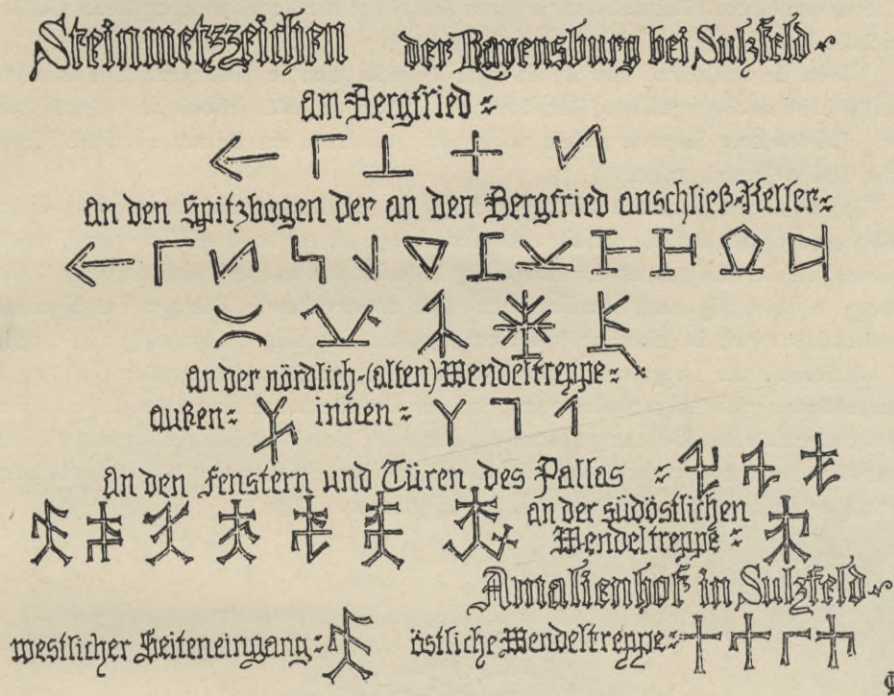 Steinmetzzeichen der Ravensburg bei Sulzfeld
am Bergfried
an den Spitzbogen der an den Bergfried anschließ-Keller
an der nördlich-(alten) Wendeltreppe
außen innen
an den Fenstern und Türen des Pallas
an der südöstlichen
Wendeltreppe
Amalienhof in Sulzfeld
westlicher Seiteneingang östliche Wendeltreppe